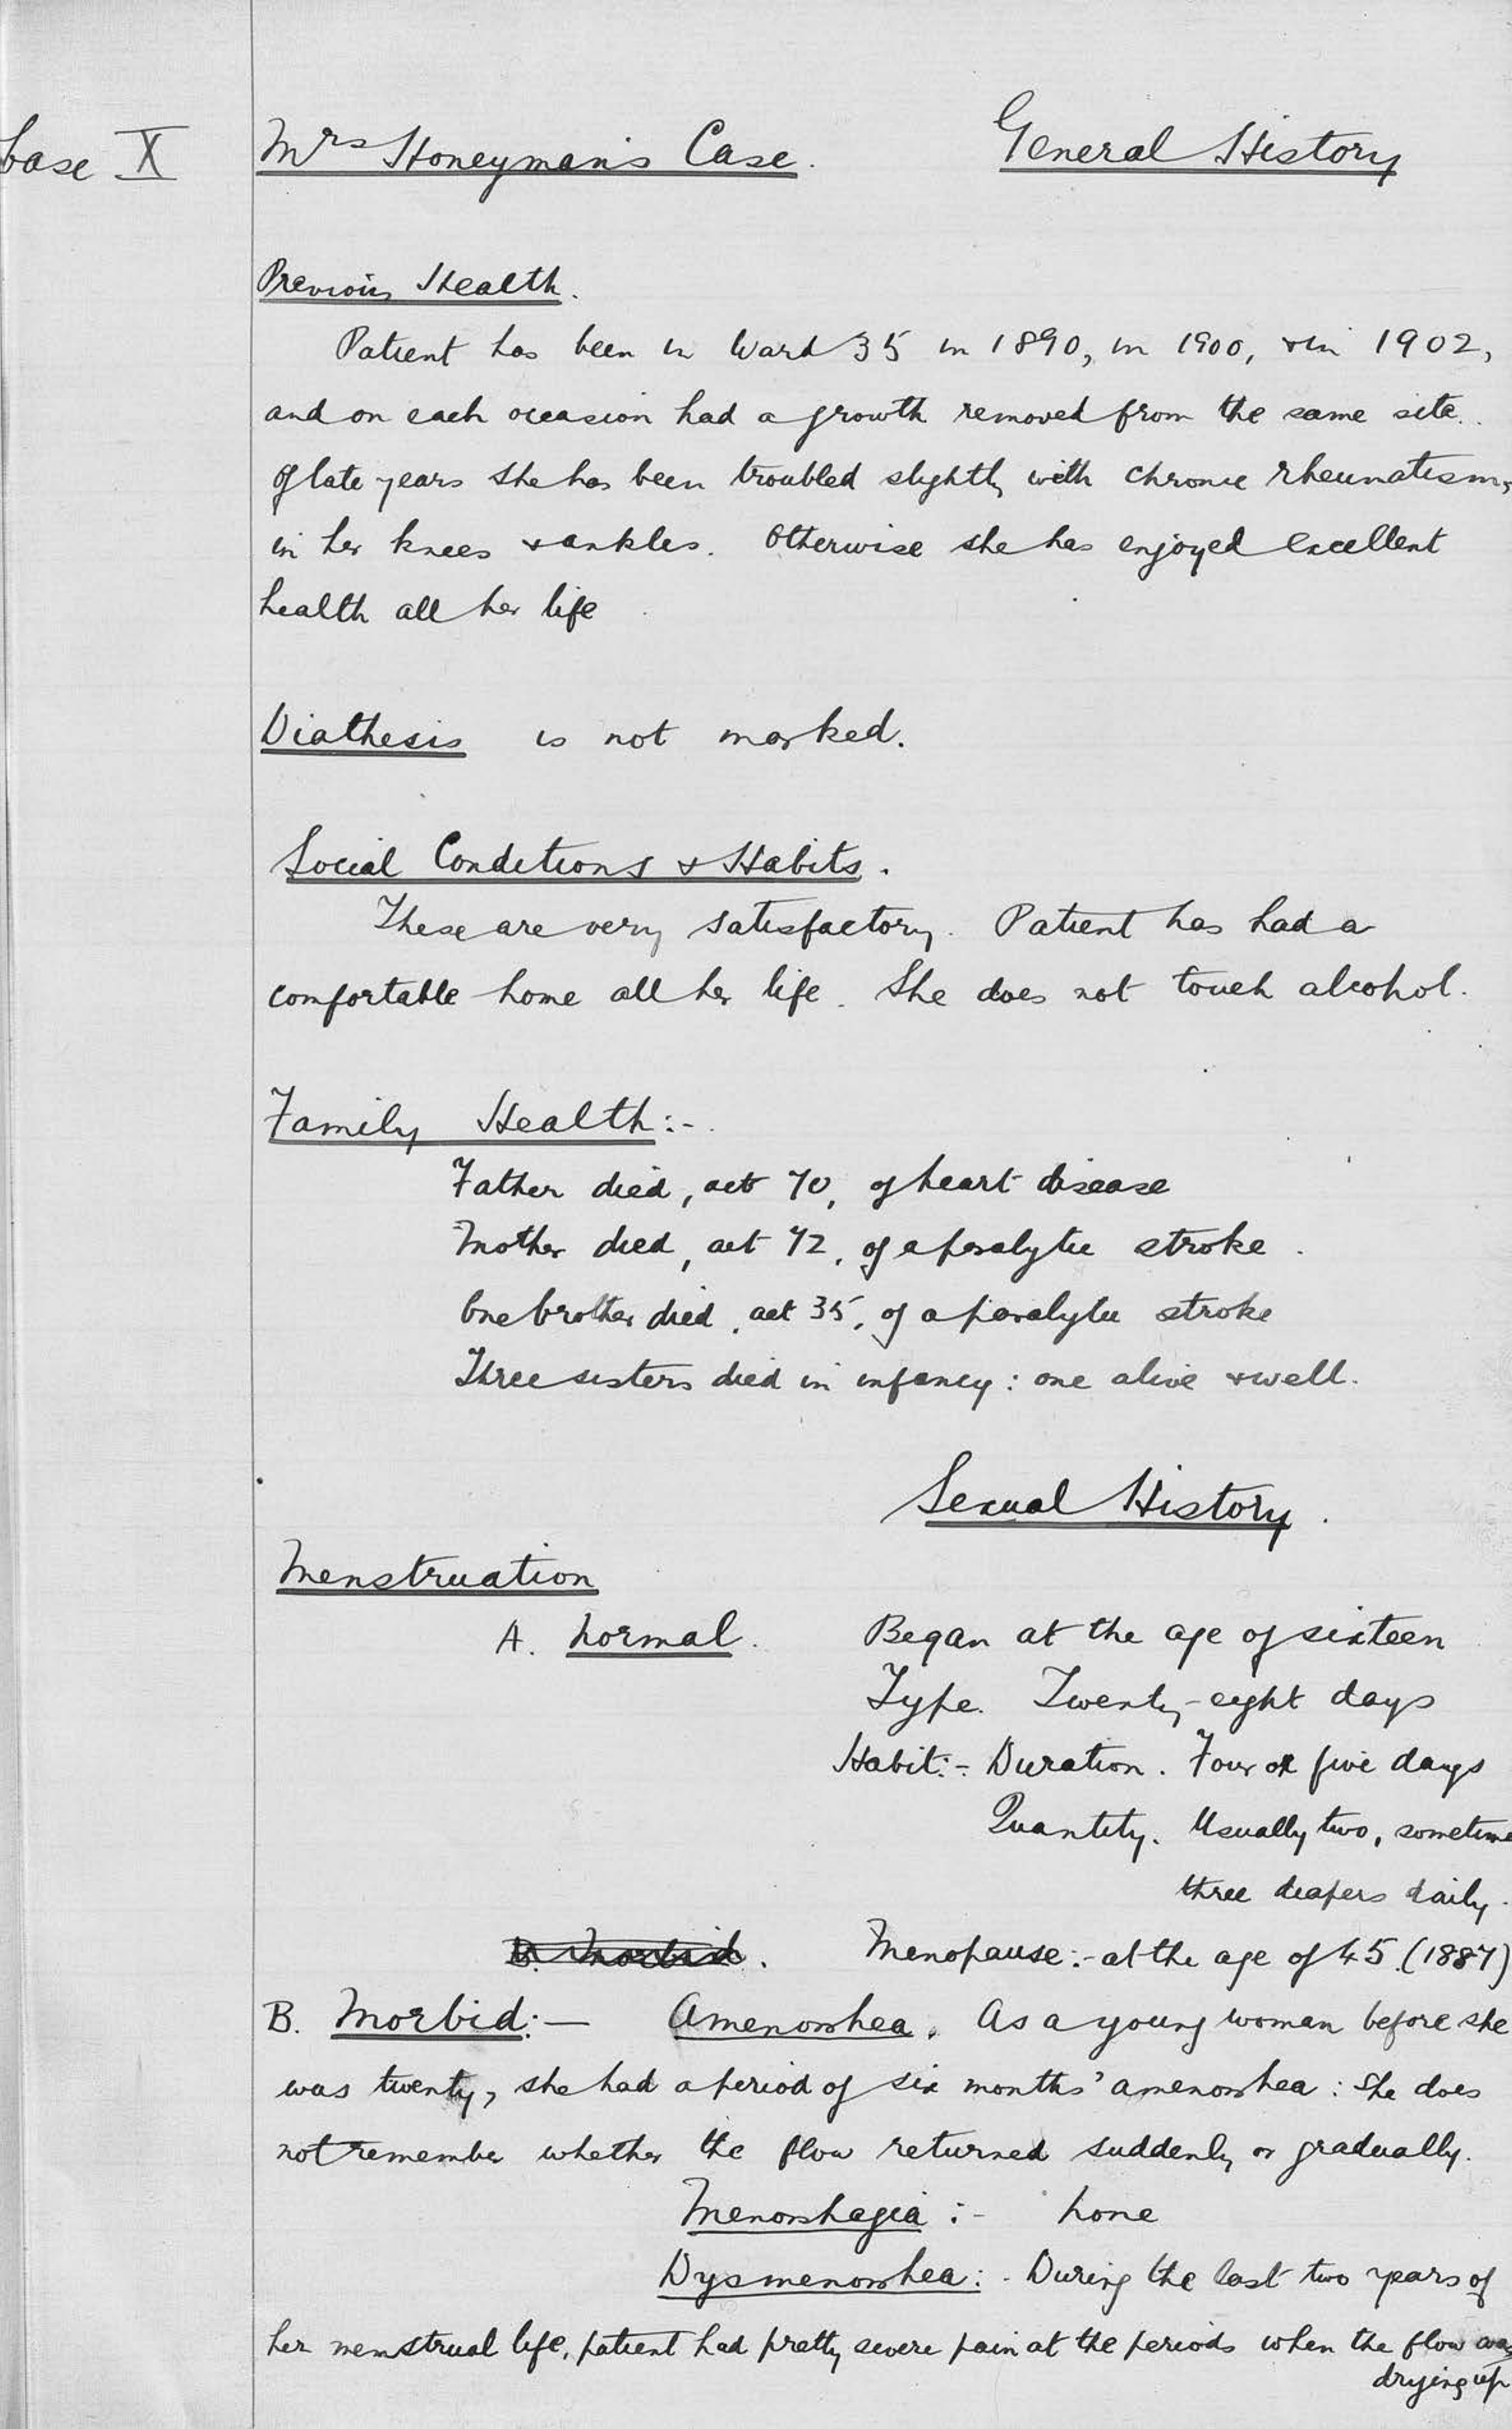 Case X Mrs Honeyman's Case. General History
Previous Health.
Patient has been in Ward 35 in 1890, in 1900, & in 1902,
and on each occasion had a growth removed from the same site.
Of late years she has been troubled slightly with chronic rheumatism,
in her knees & ankles. Otherwise she has enjoyed excellent
health all her life
Diathesis is not marked.
Social Conditions & Habits.
These are very satisfactory. Patient has had a
comfortable home all her life. She does not touch alcohol.
Family Health:-
Father died, aet 70, of heart disease
Mother died, aet 72, of a paralytic stroke.
One brother died, aet 35, of a paralytic stroke
Three sisters died in infancy: one alive & well.
Sexual History.
Menstruation
A. Normal. Began at the age of sixteen
Type. Twenty-eight days
Habit:- Duration. Four or five days
Quantity. Usually two, sometime
three diapers daily.
B. Morbid. Menopause:- at the age of 45. (1887)
B. Morbid:- Amenorrhea. As a young woman before she
was twenty, she had a period of six months' amenorrhea: she does
not remember whether the flow returned suddenly or gradually.
Menorrhagia:- None
Dysmenorrhea:- During the last two years of
her menstrual life, patient had pretty severe pain at the periods when the flow was
drying up